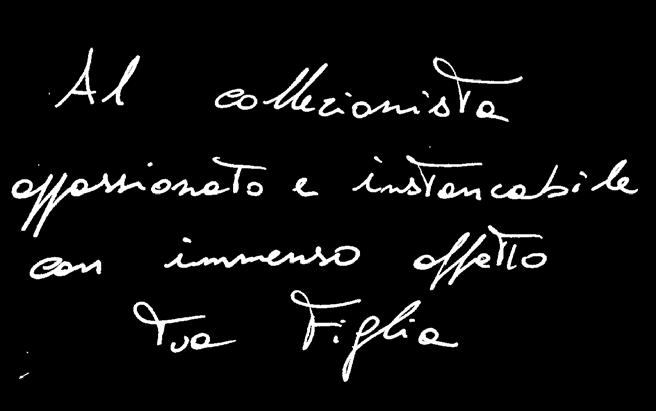 Al collezionista
appassionato e instancabile
con immenso affetto
Tua Figlia